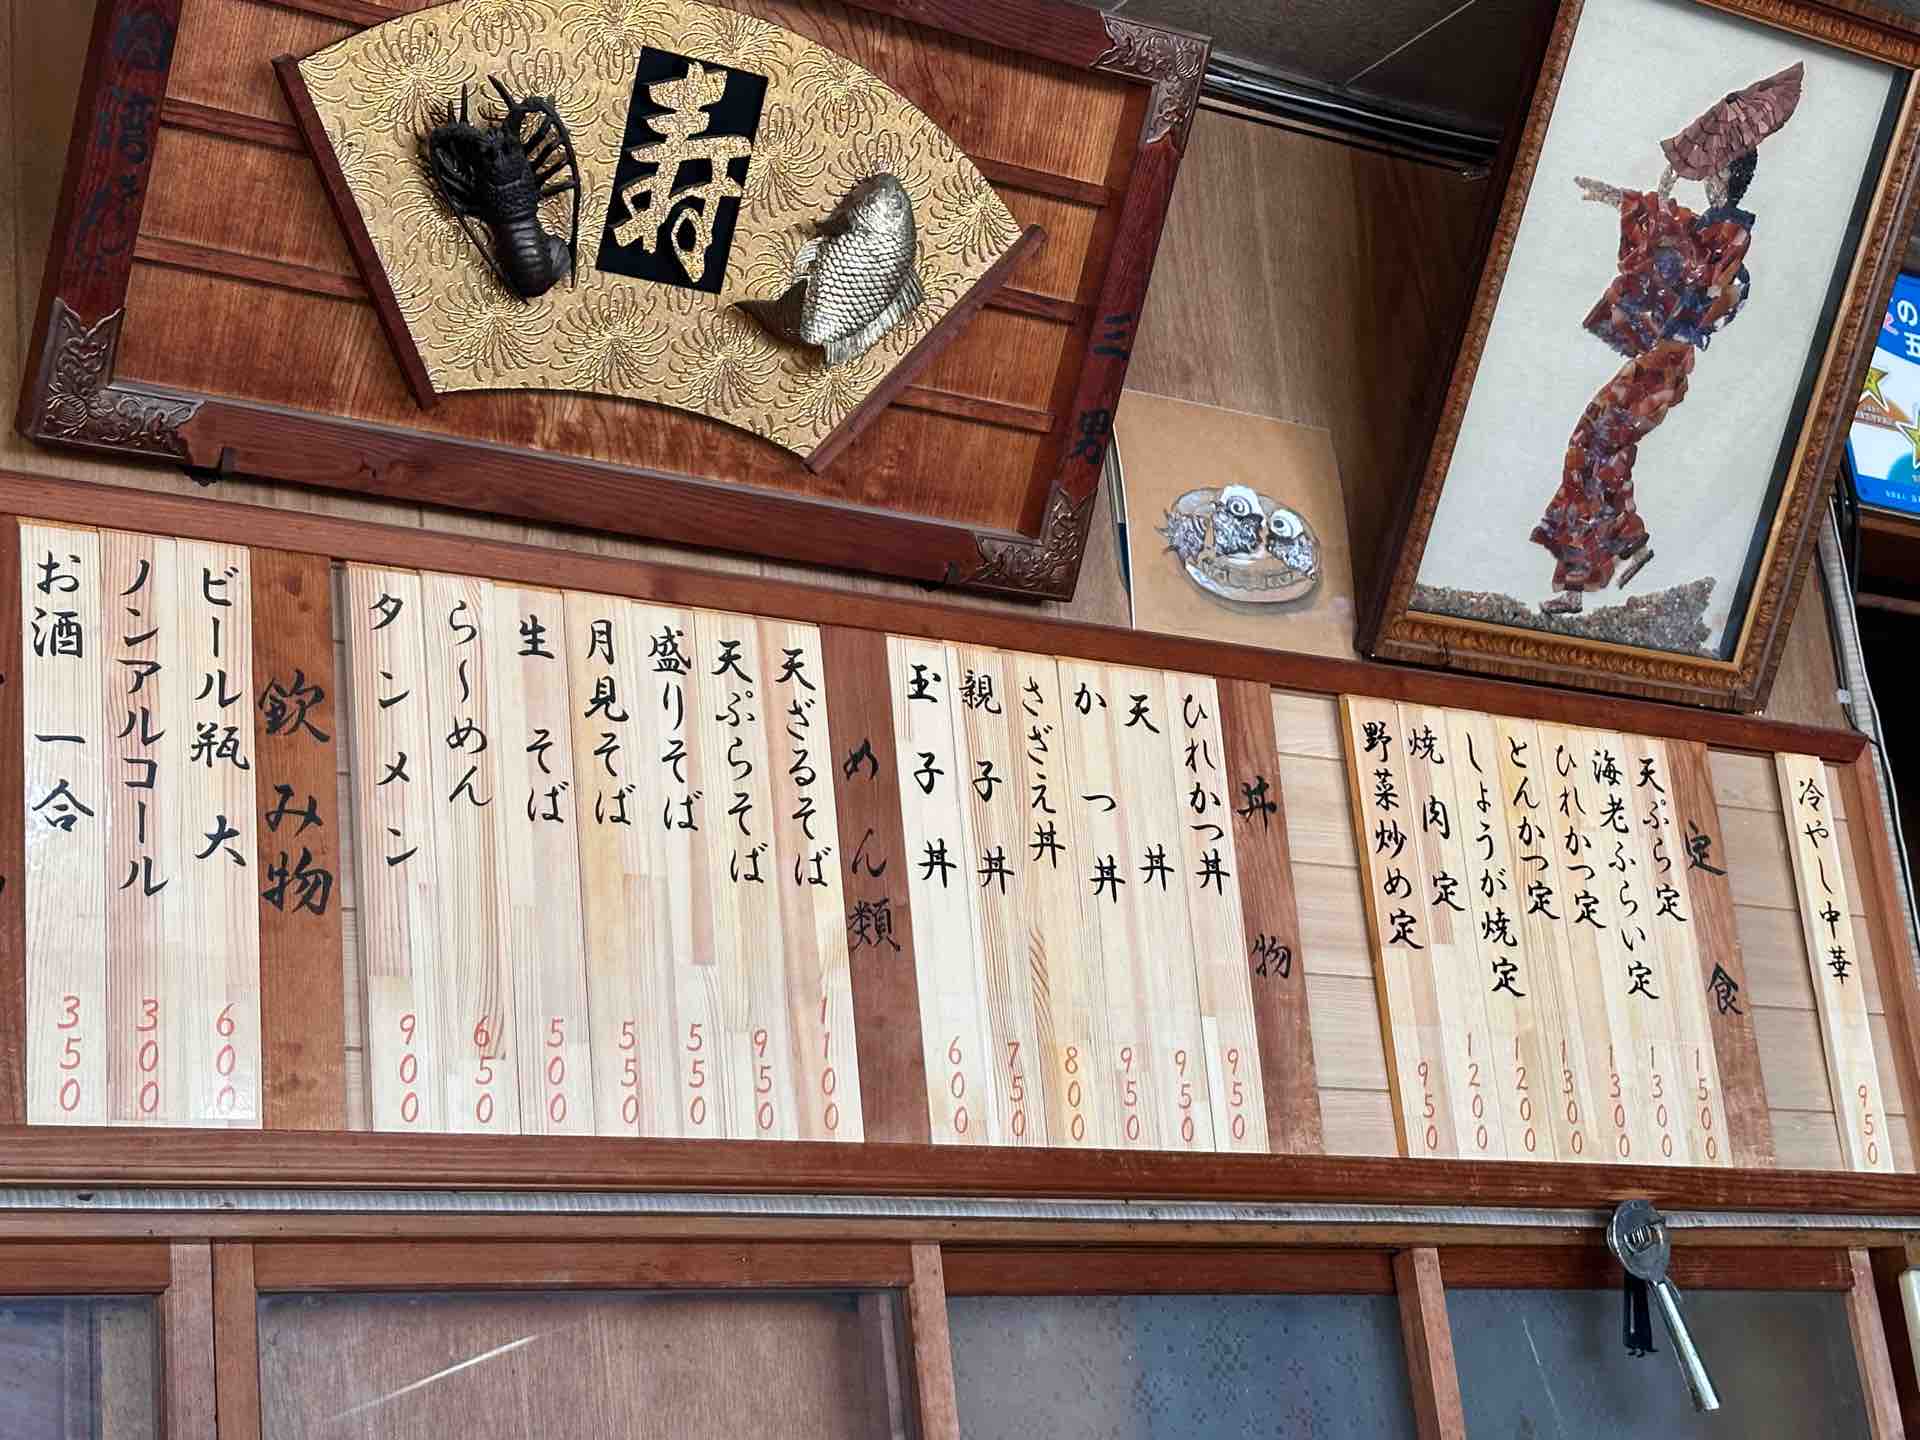 寿
三男
冷やし中華 950
定食
天ぷら定 1500
海老ふらい定 1300
ひれかつ定 1300
とんかつ定 1300
しょうが焼定 1200
焼肉定 1200
野菜炒め定 950
丼物
ひれかつ丼 950
天丼 950
かつ丼 950
さざえ丼 800
親子丼 750
玉子丼 600
めん類
天ざるそば 1100
天ぷらそば 950
盛りそば 550
月見そば 550
生そば 500
ら〜めん 650
タンメン 900
飲み物
ビール瓶大 600
ノンアルコール 300
お酒一合 350